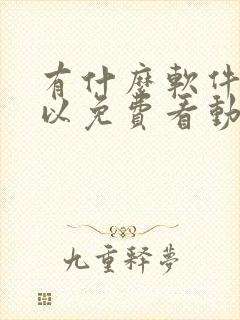 有什麼軟件
以免費看動
九重釋夢